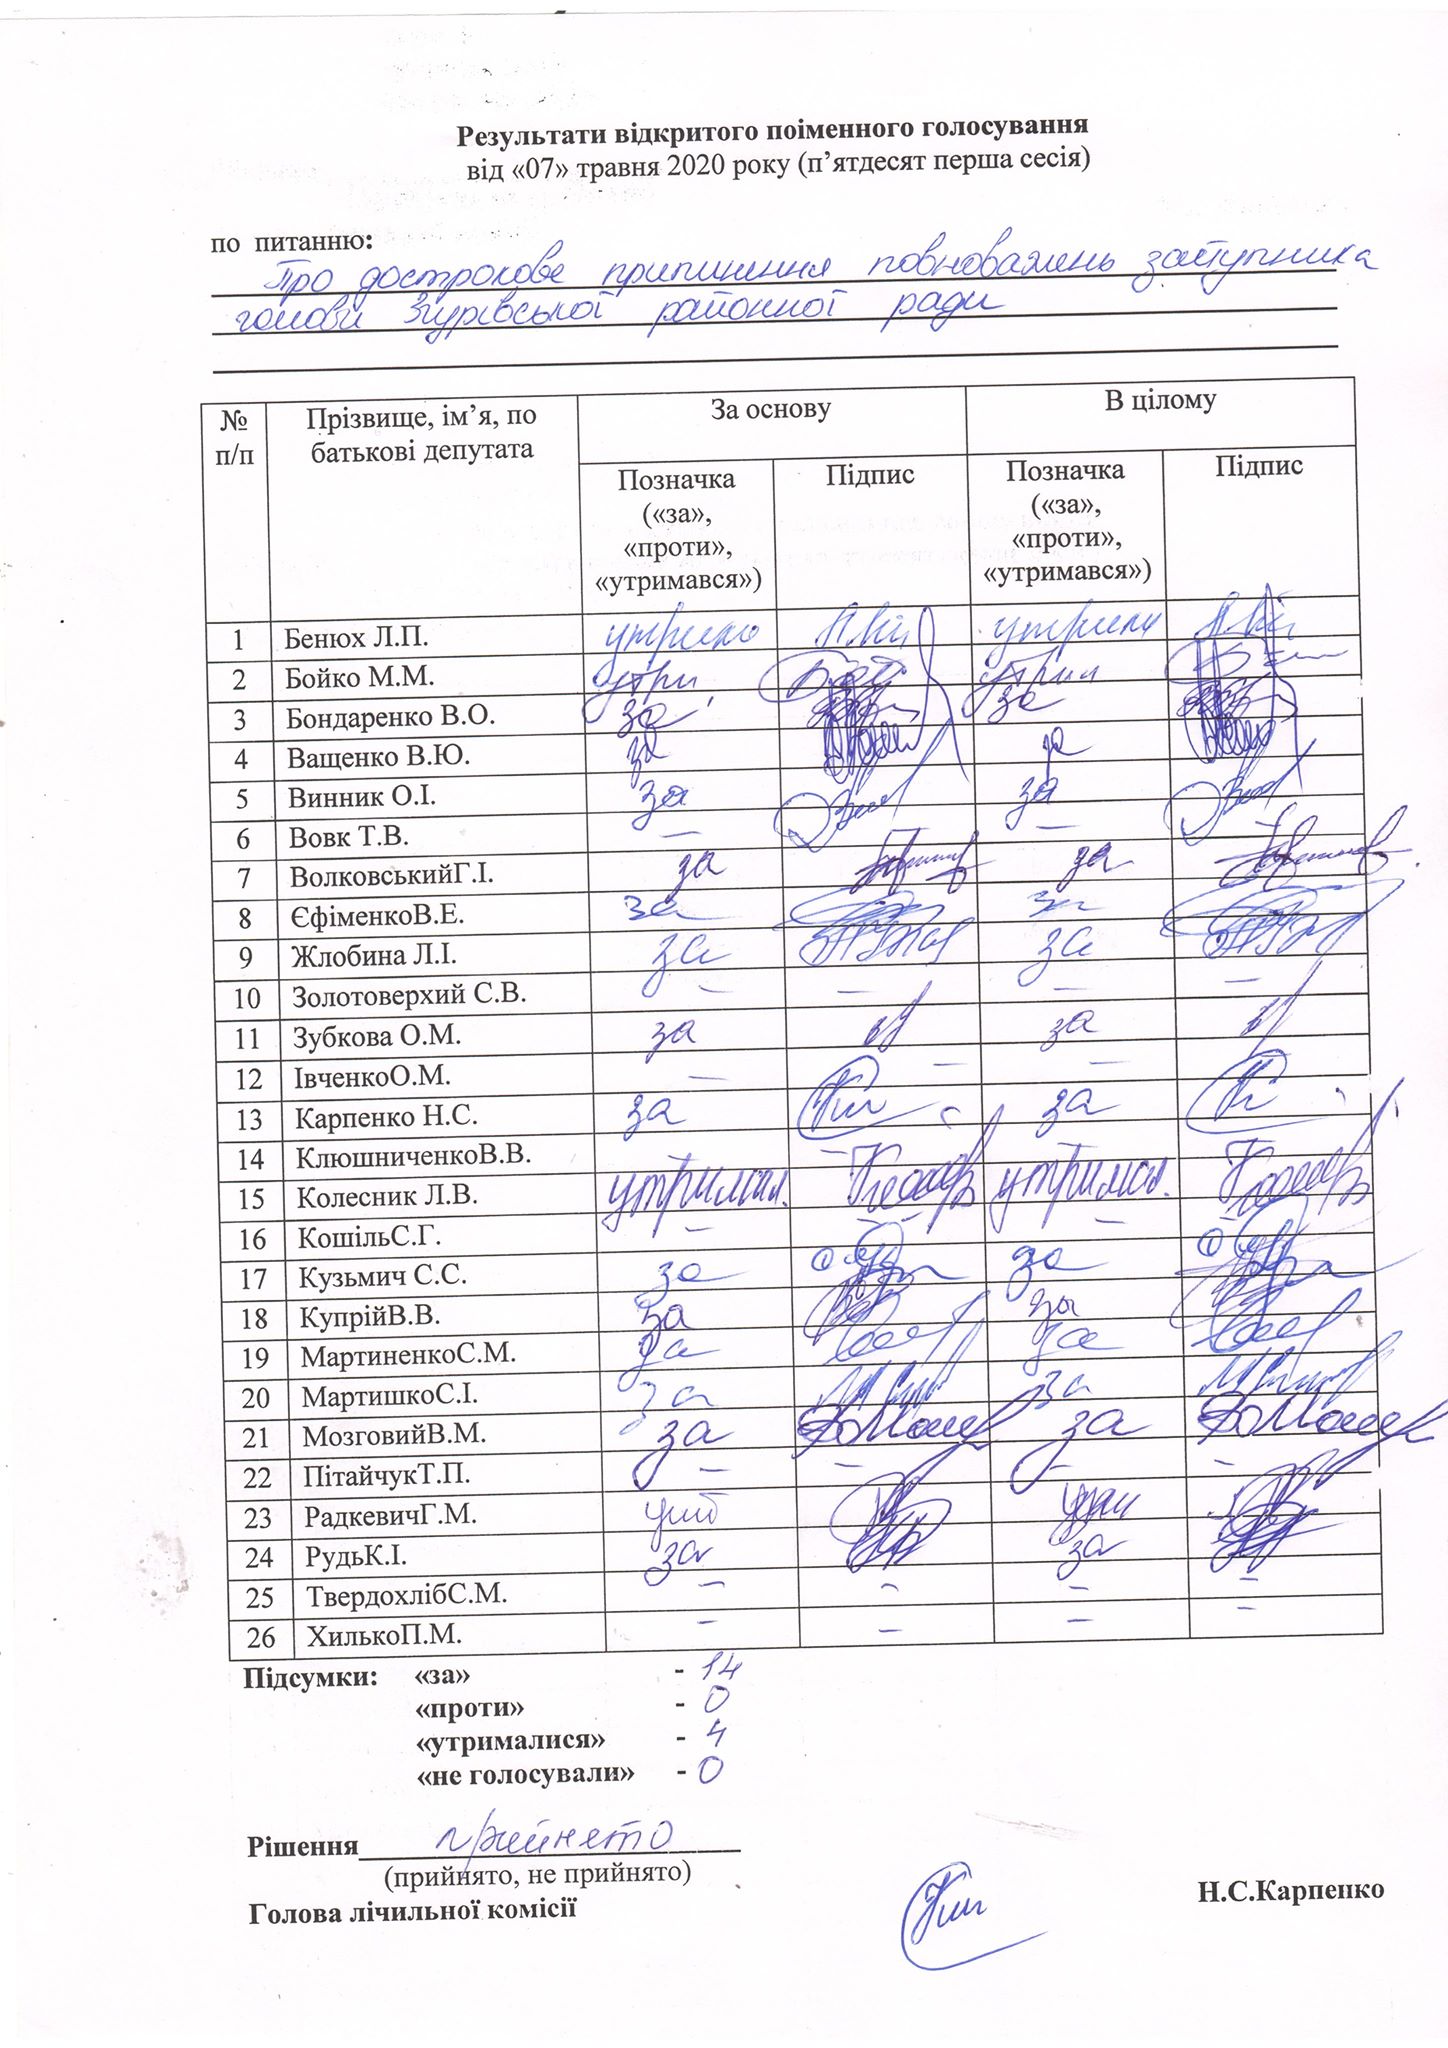 Результати відкритого поіменного голосування
від «07» травня 2020 року (п’ятдесят перша сесія)
по питанню:
Про дострокове припинення повноважень заступника
голови Згурівської районної ради
№ п/п Прізвище, ім’я, по батькові депутата За основу В цілому
Позначка («за», «проти», «утримався») Підпис Позначка («за», «проти», «утримався») Підпис
1 Бенюх Л.П.
2 Бойко М.М. утри
3 Бондаренко В.О. за за
4 Ващенко В.Ю. за за
5 Винник О.І. за за
6 Вовк Т.В. — — —
7 ВолковськийГ.І. за за
8 ЄфіменкоВ.Е. за за
9 Жлобина Л.І. за за
10 Золотоверхий С.В. — — — —
11 Зубкова О.М. за за
12 ІвченкоО.М. — — —
13 Карпенко Н.С. за за
14 КлюшниченкоВ.В.
15 Колесник Л.В. утримал. утримал.
16 КошільС.Г. — — —
17 Кузьмич С.С. за за
18 КупрійВ.В. за за
19 МартиненкоС.М. за за
20 МартишкоС.І. за за
21 МозговийВ.М. за за
22 ПітайчукТ.П. — — — —
23 РадкевичГ.М.
24 РудьК.І. за за
25 ТвердохлібС.М. — — — —
26 ХилькоП.М. — — — —
Підсумки: «за» - 14
«проти» - 0
«утрималися» - 4
«не голосували» - 0
Рішення прийнято
(прийнято, не прийнято)
Голова лічильної комісії Н.С.Карпенко